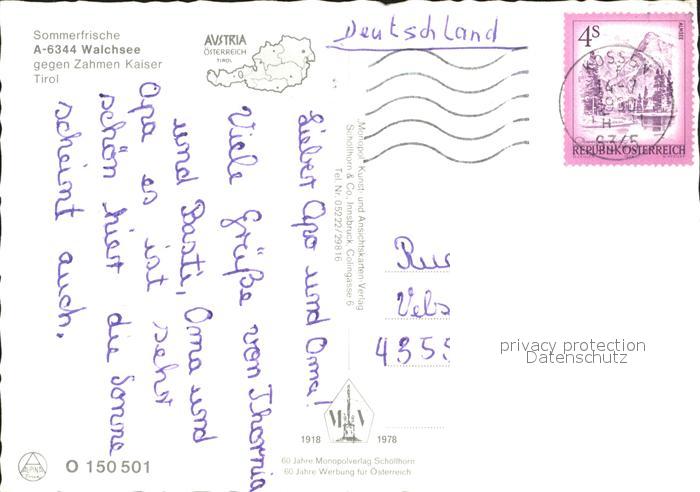 Sommerfrische
A-6344 Walchsee
gegen Zahmen Kaiser
Tirol
AUSTRIA
ÖSTERREICH
TIROL
Deutschland
4S
ALMSEE
REPUBLIK ÖSTERREICH
Lieber Opa und Oma!
Viele Grüße von Thornia
und Basti, Oma und
Opa es ist sehr
schön hier die Sonne
scheint auch.
„Monopol" Kunst- und Ansichtskarten-Verlag
Schöllhorn & Co. Innsbruck, Colingasse 6
Tel. Nr. 05222/29816
M V
1918 1978
60 Jahre Monopolverlag Schöllhorn
60 Jahre Werbung für Österreich
privacy protection
Datenschutz
ALPINA
O 150 501